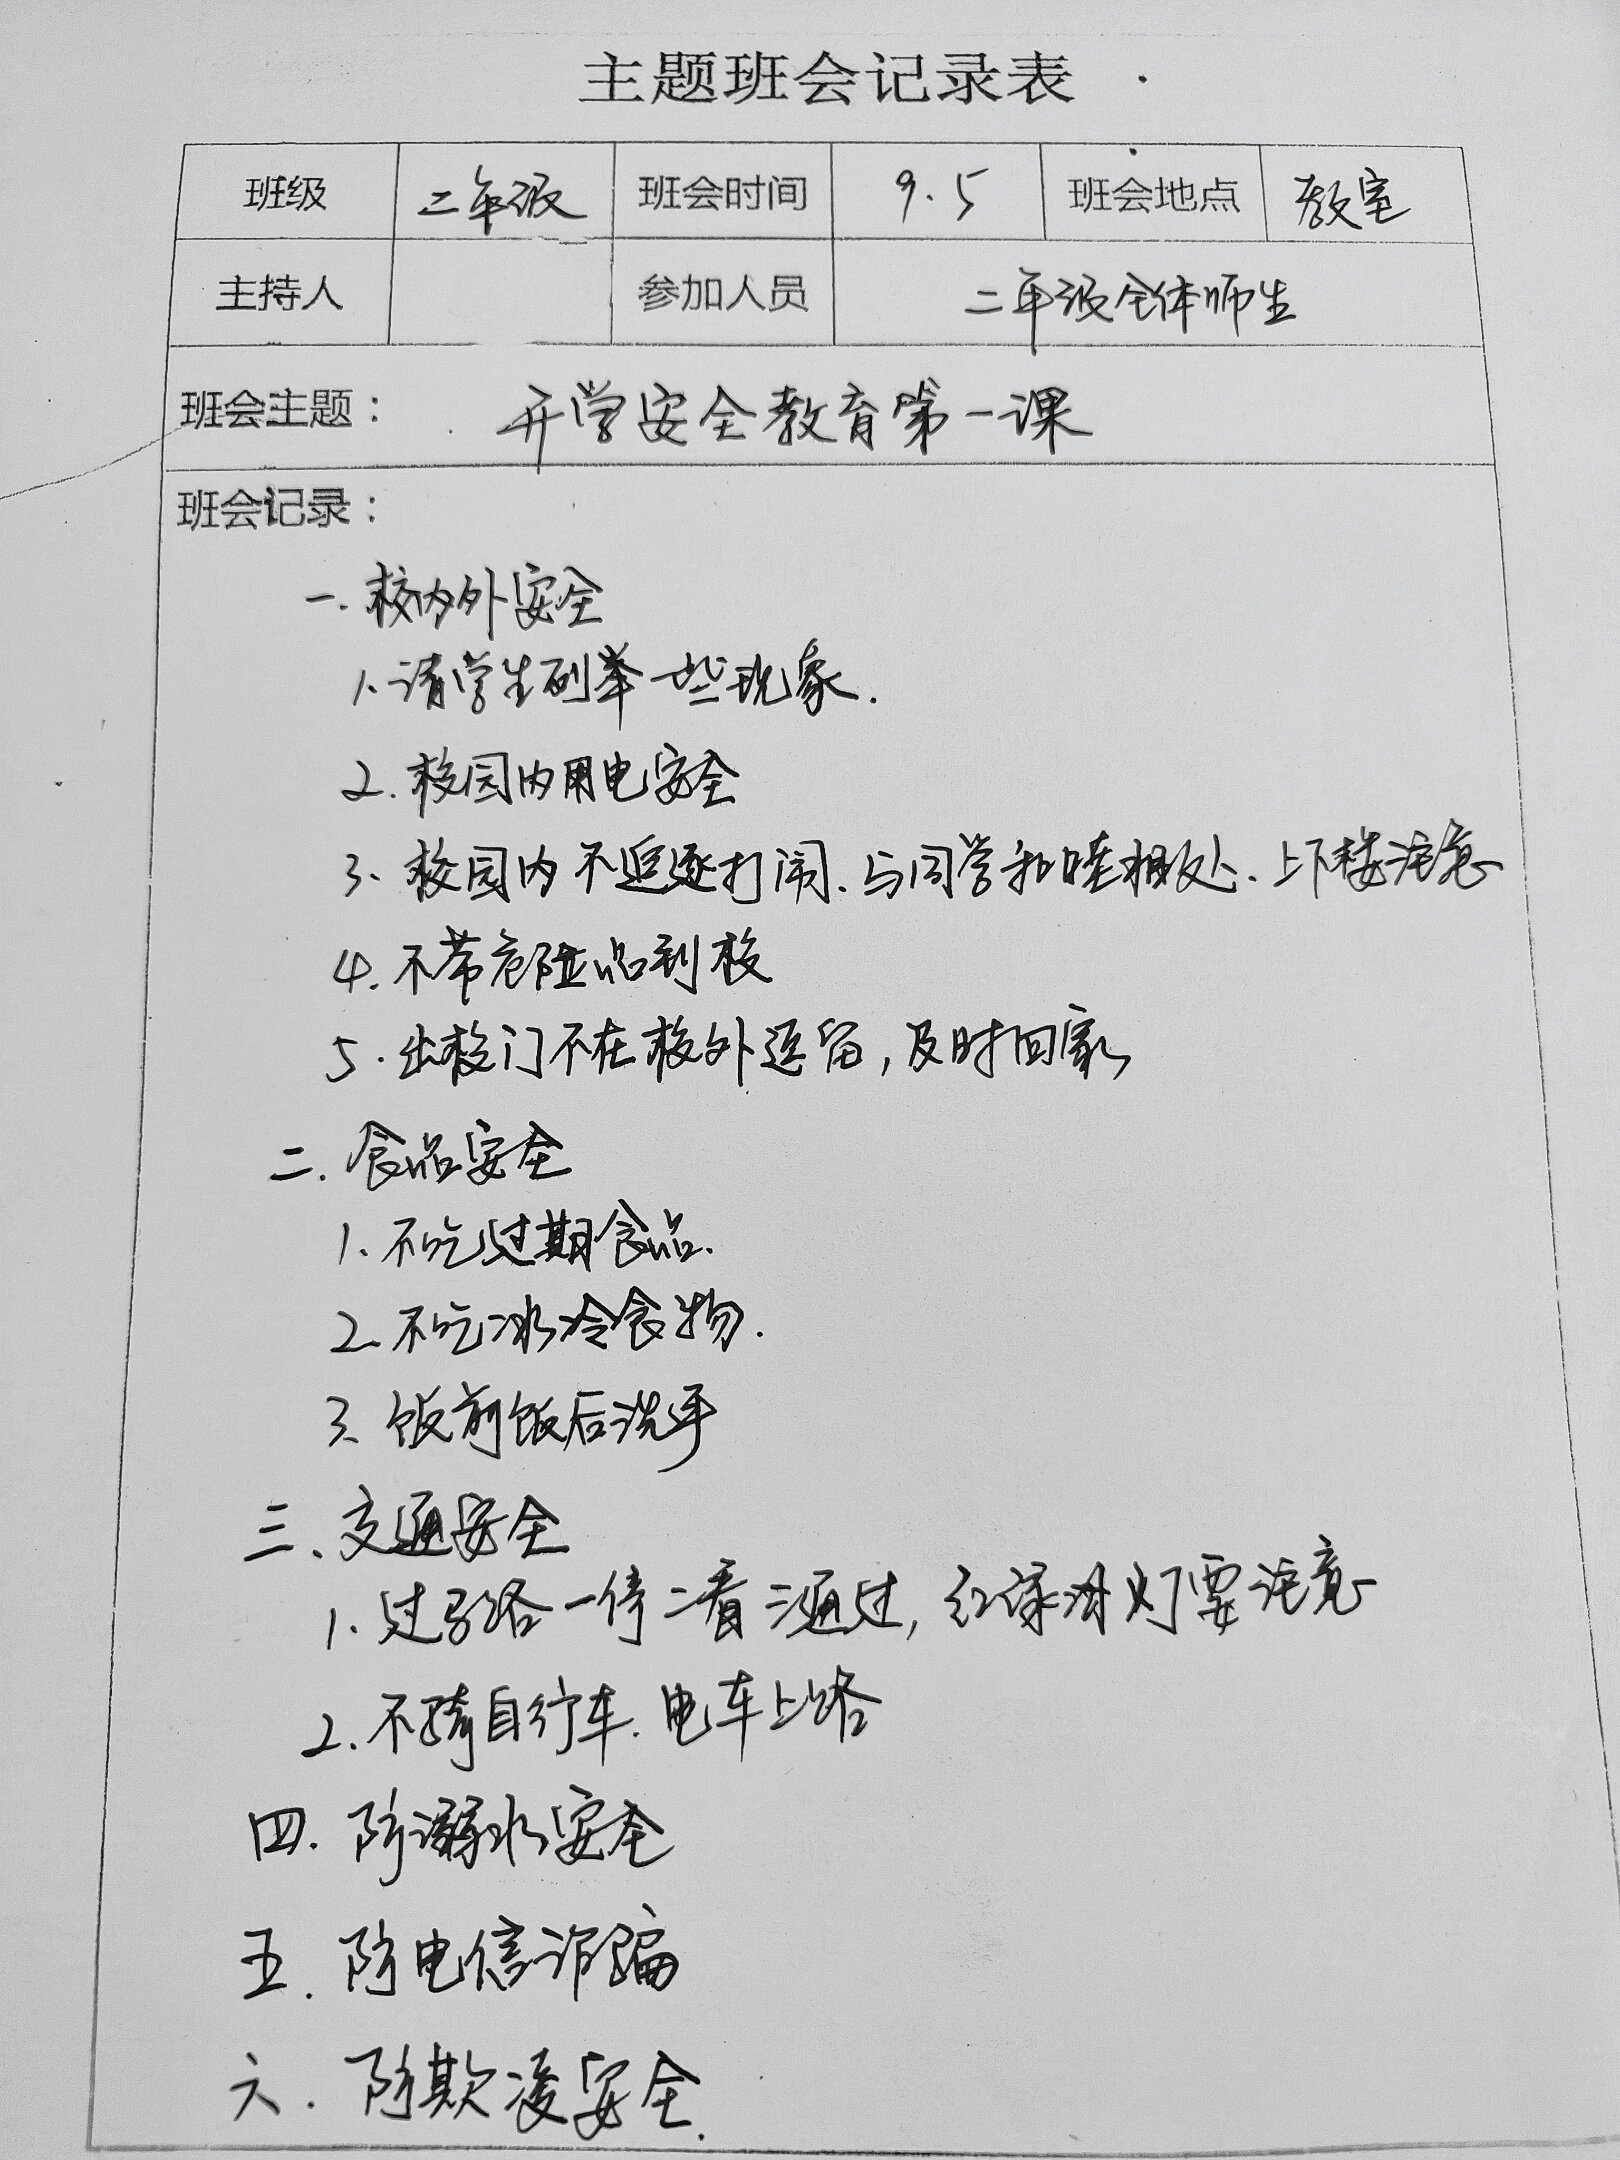 主题班会记录表
班级 二年级 班会时间 9.5 班会地点 教室
主持人 参加人员 二年级全体师生
班会主题： 开学安全教育第一课
班会记录：
一.校内外安全
1.请学生列举一些现象.
2.校园内用电安全
3、校园内不追逐打闹、与同学和睦相处、上下楼注意
4.不带危险品到校
5.出校门不在校外逗留,及时回家
二.食品安全
1.不吃过期食品.
2.不吃冰冷食物.
3、饭前饭后洗手
三、交通安全
1.过马路一停二看三通过,红绿灯要注意
2.不骑自行车.电车上路
四.防溺水安全
五.防电信诈骗
六.防欺凌安全.